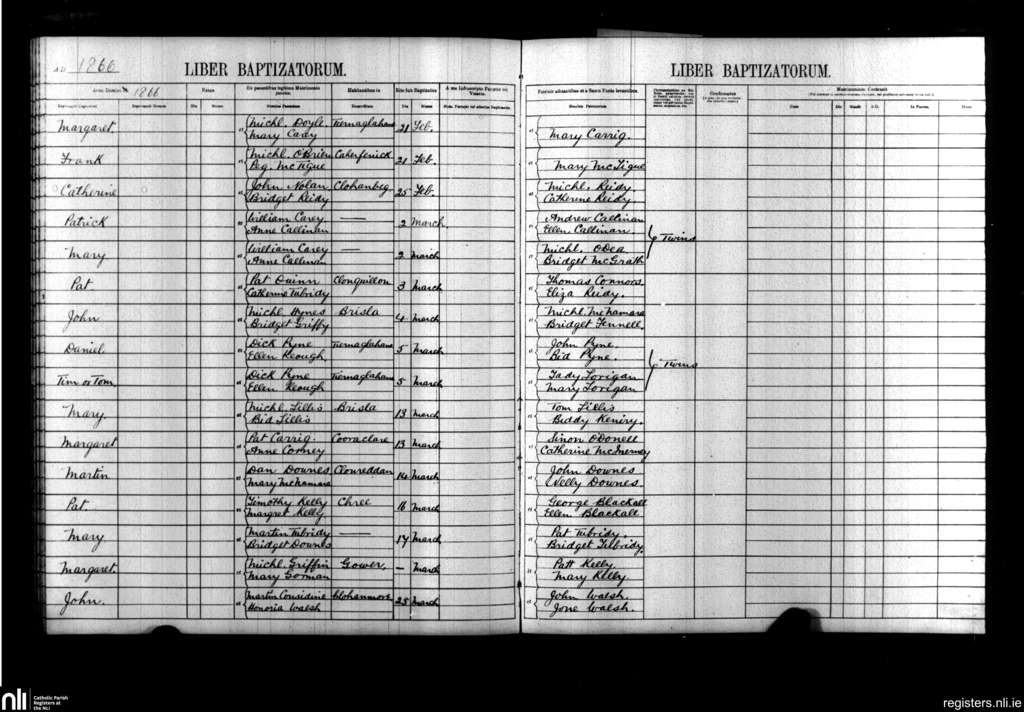 A.D. 1866
LIBER BAPTIZATORUM.
LIBER BAPTIZATORUM.
Anno Domini 1866
Margaret. Michl. Doyle Tiernaglahane 21 Feb. Mary Carrig.
Mary Cady
Frank Michl. O'Brien Caherfenick 21 Feb. Mary McTigue
Peg. McTigue
Catherine John Nolan Clohanbeg 25 Feb. Michl. Reidy.
Bridget Reidy Catherine Reidy.
Patrick William Carey — 2 March. Andrew Callinan
Anne Callinan Ellen Callinan. Twins
Mary William Carey — 2 March Michl. ODea
Anne Callinan Bridget McGrath
Pat Pat Quinn Clonquillon 3 March Thomas Connors
Catherine Tubridy Eliza Reidy.
John Michl. Hynes Brisla 4 March Michl. McNamara
Bridget Griffy Bridget Fennell.
Daniel Dick Pyne Tiernaglahane 5 March John Pyne.
Ellen Keough. Bid Pyne. Twins
Tim or Tom Dick Pyne Tiernaglahane 5 March Tady Lorigan
Ellen Keough Mary Lorigan
Mary Michl. Lillis Brisla 13 March Tom Lillis
Bid Lillis Biddy Keniry.
Margaret Pat Carrig. Cooraclare 13 March Sinon ODonell
Anne Cooney Catherine McInerney
Martin Dan Downes Clonreddan 14 March John Downes
Mary McNamara Nelly Downes.
Pat. Timothy Kelly Chree 16 March George Blackall
Margret Kelly Ellen Blackall
Mary Martin Tubridy — 17 March Pat Tubridy.
Bridget Downes Bridget Tubridy.
Margaret. Michl. Griffin Gower. — March Patt Kelly
Mary Gorman Mary Kelly
John. Martin Considine Clohanmore 25 March John Walsh.
Honoria Walsh Jane Walsh.
nli
Catholic Parish
Registers at
the NLI
registers.nli.ie